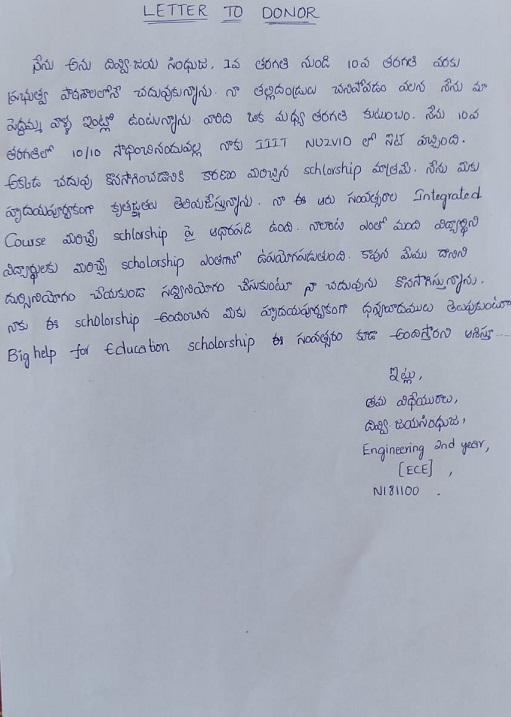 LETTER TO DONOR
నేను అను దివ్వి జయ సింధుజ. 1వ తరగతి నుండి 10వ తరగతి వరకు
ప్రభుత్వ పాఠశాలలోనే చదువుకున్నాను. నా తల్లిదండ్రులు చనిపోవడం వలన నేను మా
పెద్దమ్మ వాళ్ళ ఇంట్లో ఉంటున్నాను వారిది ఒక మధ్య తరగతి కుటుంబం. నేను 10వ
తరగతిలో 10/10 సాధించినందువల్ల నాకు IIIT NUZVID లో సీట్ వచ్చింది.
అక్కడ చదువు కొనసాగించడానికి కారణం మీరిచ్చిన schlorship మాత్రమే. నేను మీకు
హృదయపూర్వకంగా కృతజ్ఞతలు తెలియచేస్తున్నాను. నా ఈ ఆరు సంవత్సరాల Integrated
Course మీరిచ్చే schlorship పై ఆధారపడి ఉంది. నాలాంటి ఎంతో మంది విద్యార్థిని
విద్యార్థులకు మీరిచ్చే scholorship ఎంతగానో ఉపయోగపడుతుంది. కావున మేము దానిని
దుర్వినియోగం చేయకుండా సద్వినియోగం చేసుకుంటూ నా చదువును కొనసాగిస్తున్నాను.
నాకు ఈ scholorship అందించిన మీకు హృదయపూర్వకంగా ధన్యవాదములు తెలుపుకుంటూ
Big help for Education scholorship ఈ సంవత్సరం కూడా అందిస్తారని ఆశిస్తూ....
ఇట్లు,
తమ విధేయురాలు,
దివ్వి జయసింధుజ,
Engineering 2nd year,
[ECE],
N181100.